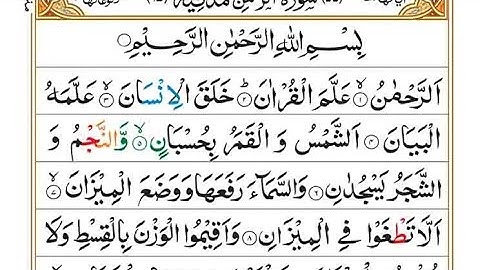 بِسْمِ اللهِ الرَّحْمٰنِ الرَّحِيْمِ
اَلرَّحْمٰنُ ۙ﴿۱﴾ عَلَّمَ الْقُرْاٰنَ ؕ﴿۲﴾ خَلَقَ الْاِنْسَانَ ۙ﴿۳﴾ عَلَّمَهُ
الْبَيَانَ ﴿۴﴾ اَلشَّمْسُ وَ الْقَمَرُ بِحُسْبَانٍ ۪﴿۵﴾ وَّالنَّجْمُ وَ
الشَّجَرُ يَسْجُدٰنِ ﴿۶﴾ وَالسَّمَآءَ رَفَعَهَا وَوَضَعَ الْمِيْزَانَ ۙ﴿۷﴾
اَلَّا تَطْغَوْا فِي الْمِيْزَانِ ﴿۸﴾ وَاَقِيْمُوا الْوَزْنَ بِالْقِسْطِ وَلَا